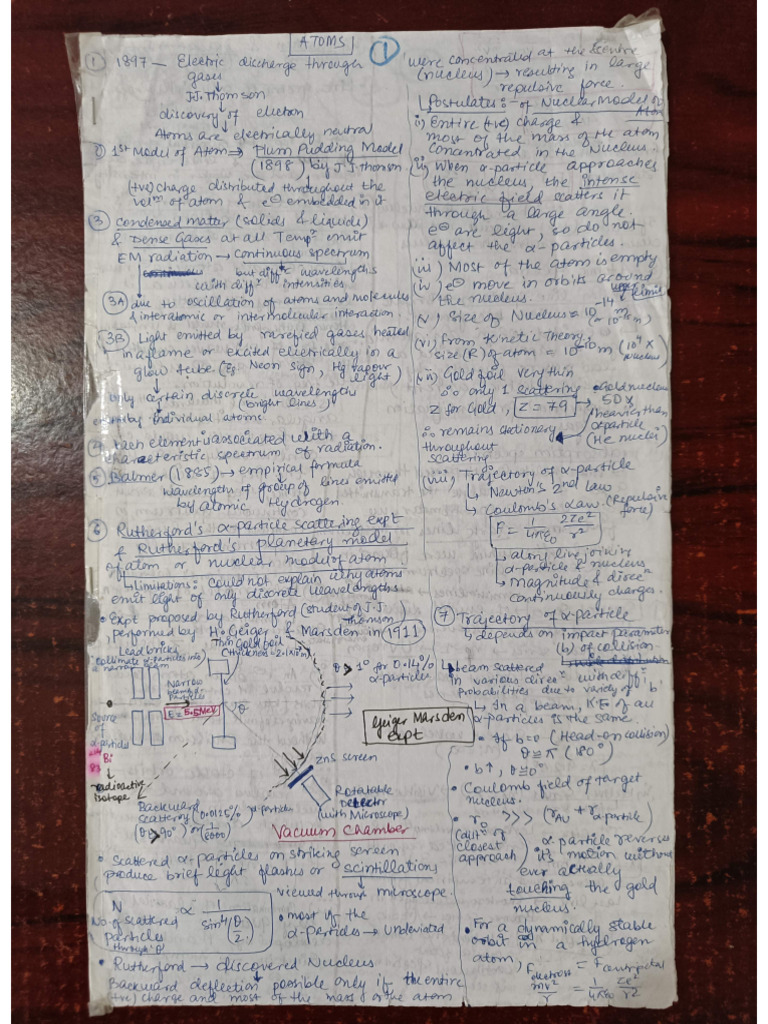 ATOMS
①
① 1897 — Electric discharge through
gases
J.J. Thomson
discovery of electron
Atoms are electrically neutral
② 1st Model of Atom ⇒ Plum Pudding Model
(1898) by J.J. Thomson
(+ve) charge distributed throughout the
volm of atom & e⊖ embedded in it
③ condensed matter (solids & liquids)
& Dense Gases at all Temp emit
EM radiation → continuous spectrum
but diff wavelengths
with diff intensities
3A due to oscillation of atoms and molecules
& interatomic or intermolecular interaction.
3B Light emitted by rarefied gases heated
in a flame or excited electrically in a
glow tube (Eg. Neon sign, Hg vapour
light)
only certain discrete wavelengths
(bright lines)
emitted by individual atoms.
④ Each element is associated with a
characteristic spectrum of radiation.
⑤ Balmer (1885) → empirical formula
wavelengths of group of lines emitted
by atomic Hydrogen
⑥ Rutherford's α-particle scattering expt
& Rutherford's planetary model
of atom or nuclear model of atom.
↳ Limitations: Could not explain why atoms
emit light of only discrete wavelengths.
• Expt proposed by Rutherford (student of J.J
Thomson)
performed by H. Geiger & Marsden in 1911
Lead bricks
(collimate α-particles into
a narrow beam)
Thin Gold foil
(Thickness = 2.1×10⁻⁷m)
Narrow
beam of α-
particles
E = 5.5 MeV
θ
θ > 1° for 0.14%
α-particles
Source
of
α-particle
Bi
83
radioactive
isotope
Geiger Marsden
expt
ZnS screen
Rotatable
Detector
(with Microscope)
Backward
Scattering (0.0125% α-particles)
(θ > 90°) or (1/8000)
Vacuum Chamber
• Scattered α-particles on striking screen
produce brief light flashes or scintillations
viewed through microscope.
N ∝ 1/sin⁴(θ/2)
No. of scattered
particles
through 'θ'
• most of the
α-particles → Undeviated
• Rutherford → discovered Nucleus
Backward deflection possible only if the entire
(+ve) charge and most of the mass of the atom
were concentrated at the centre
(nucleus) → resulting in large
repulsive force.
Postulates:- of Nuclear Model of
Atom
(i) Entire (+ve) charge &
most of the mass of the atom
concentrated in the Nucleus.
(ii) When α-particle approaches
the nucleus, the intense
electric field scatters it
through a large angle.
e⊖ are light, so do not
affect the α-particles.
(iii) Most of the atom is empty
(iv) e⊖ move in orbits around
the nucleus.
(v) Size of Nucleus = 10⁻¹⁴ m
(vi) From Kinetic Theory,
size (R) of atom = 10⁻¹⁰m (10⁴ ×
nucleus)
(vii) Gold foil very thin
∴ only 1 scattering
Z for Gold, Z = 79
Gold nucleus
50×
heavier than
α-particle
(He nuclei)
∴ remains stationary
throughout
scattering
(viii) Trajectory of α-particle
↳ Newton's 2nd law
↳ Coulomb's Law (Repulsive
force)
F = 1/4πε₀ 2Ze²/r²
↳ along line joining
α-particle & nucleus
↳ magnitude & direcn
continuously changes.
⑦ Trajectory of α-particle
↳ depends on impact parameter
(b) of collision
↳ beam scattered
in various direcn with diff
probabilities due to variety of 'b'
↳ In a beam, K.E of all
α-particles is the same.
• If b=0 (Head-on collision)
θ ≅ π (180°)
• b↑, θ≅0°
• Coulomb field of target
nucleus.
• r₀ >>> (rAu + rα-particle)
(distn of
closest
approach)
• α-particle reverses
its motion without
ever actually
touching the gold
nucleus.
• For a dynamically stable
orbit in a hydrogen
atom,
Felectrostatic = Fcentripetal
mv²/r = 1/4πε₀ e²/r²